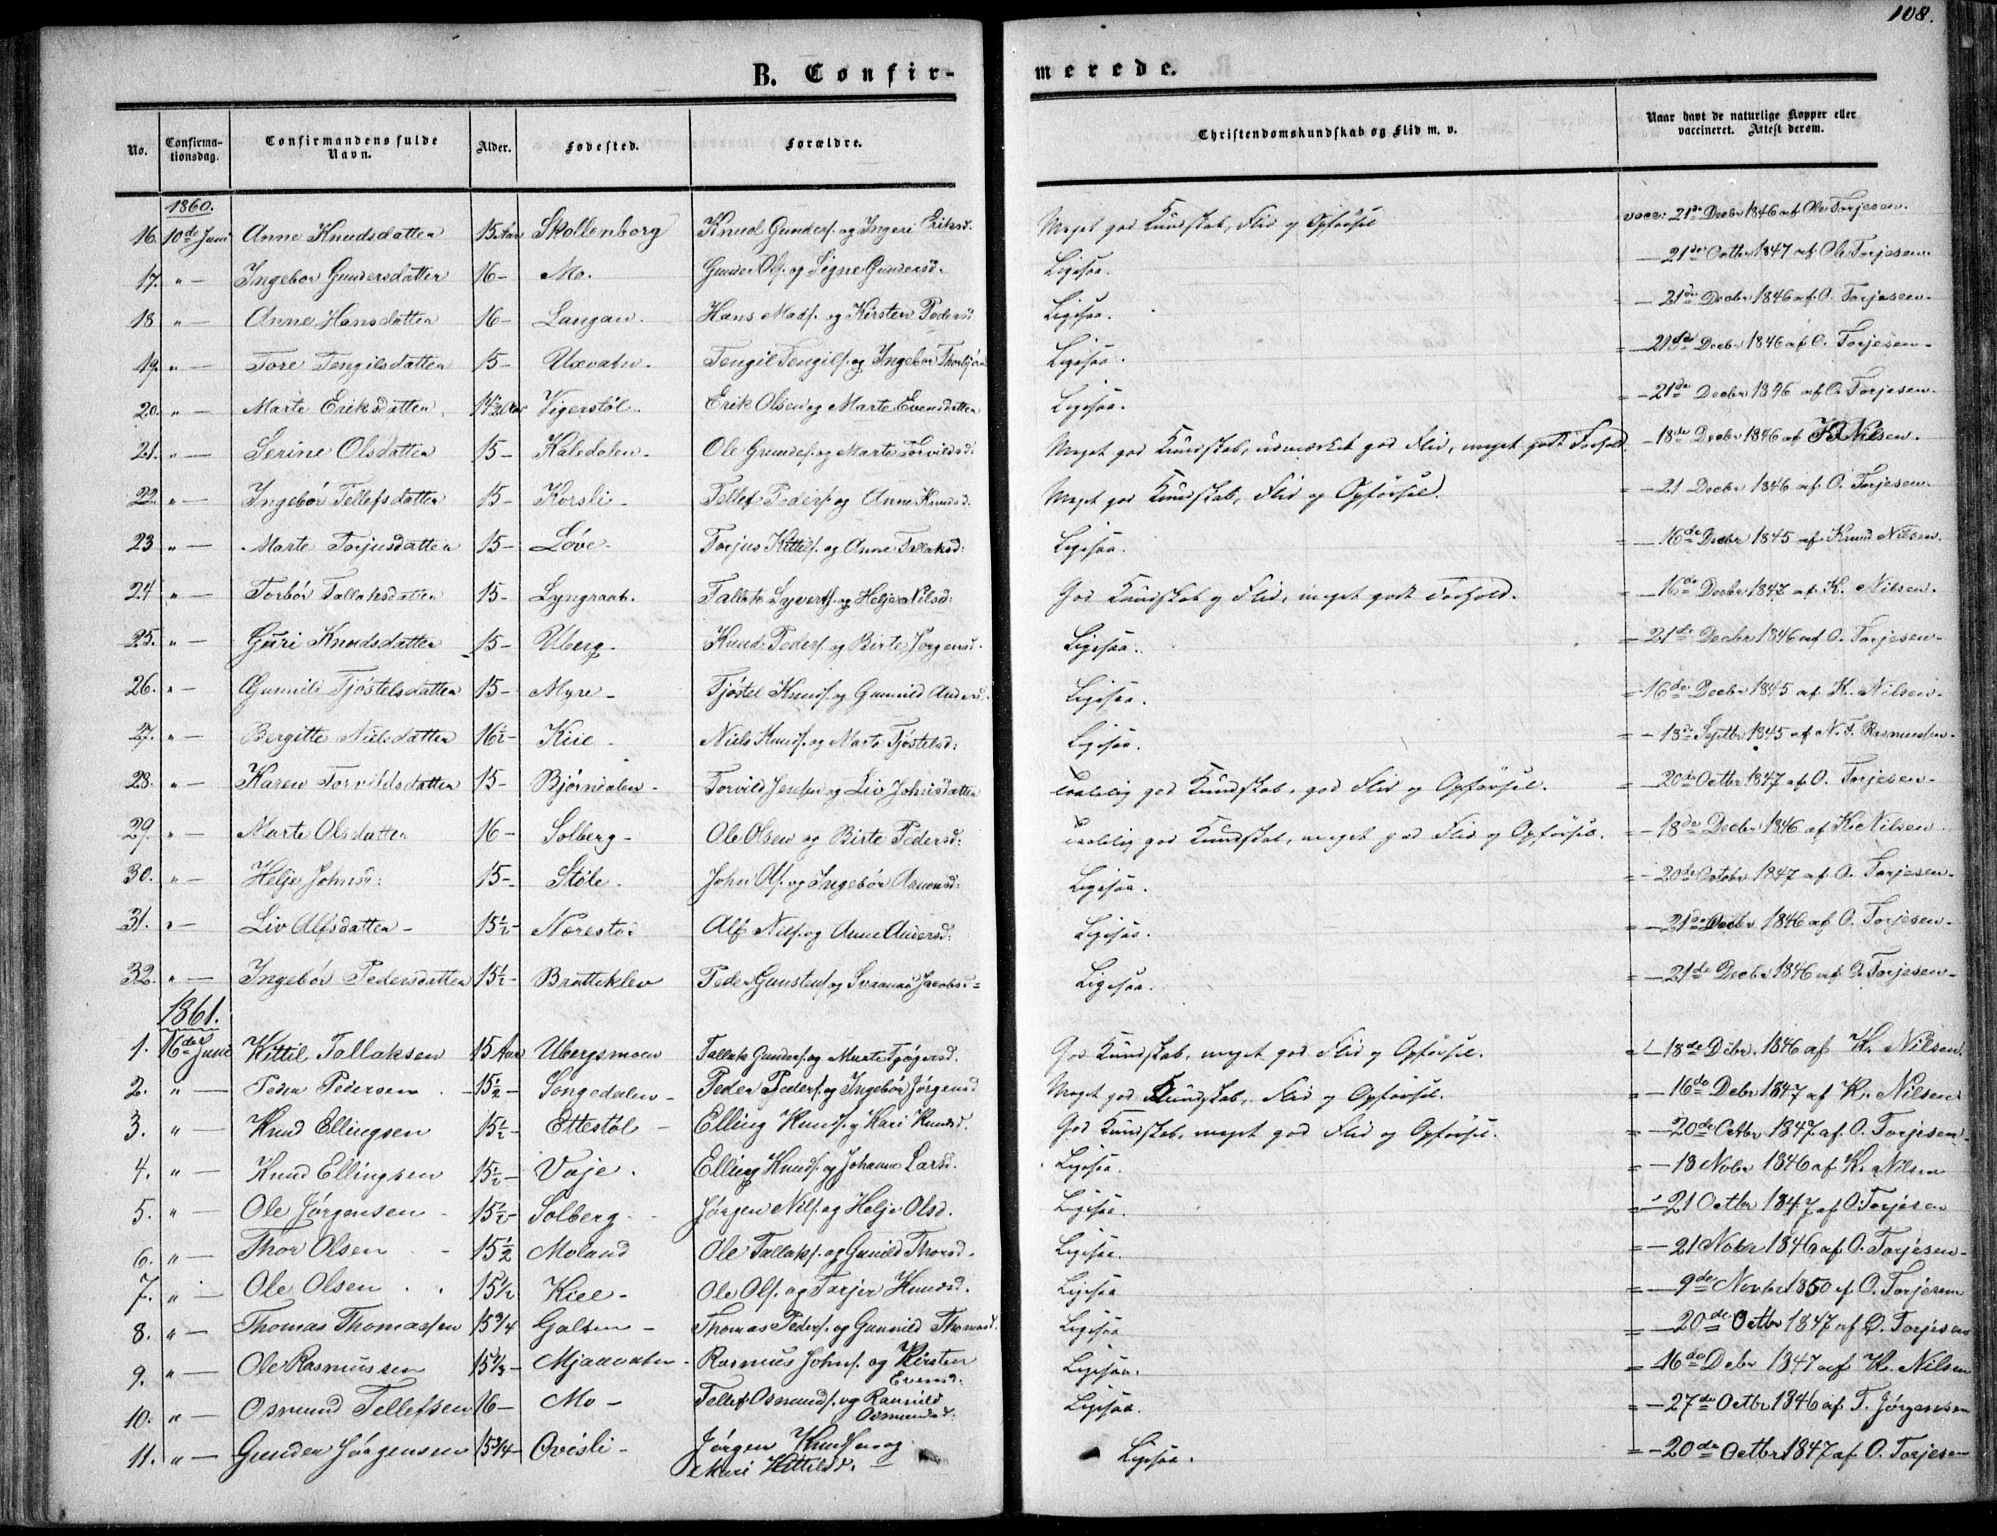 108.
B. Confir-merede.
No. Confirma-tionsdag. Confirmandens fulde Navn. Alder. Fødested. Forældre. Christendomskundskab og Flid m. v. Naar havt de naturlige Kopper eller vaccineret. Attest derom.
1860.
16. 10de Juni Anne Knudsdatter 15 Aar Skollenborg Knud Gunders. og Ingeri Eriksd. Meget god Kundskab, Flid og Opførsel vacc: 21de Decbr 1846 af Ole Torjesen.
17. " — Ingebor Gundersdatter 16 - Mo. Gunder Ols. og Signe Gundersd. Ligesaa. — 21de Octbr 1847 af Ole Torjesen.
18 " — Anne Hansdatter 16 - Langan. Hans Mads. og Kirsten Pedersd. Ligesaa. — 21de Decbr 1846 af O. Torjesen
19. " — Tore Tengilsdatter 15 - Uxvatn. Tengil Tengils. og Ingebor Ligesaa. = — 21de Decbr 1846 af O. Torjesen -
20. " — Marte Eriksdatter, Vigerstøl. Erik Olsen og Marte Evensdatter Ligesaa. = — 21de Decbr 1846 af O. Torjesen.
21. " — Serine Olsdatter 15 - Kalsdalen. Ole Grundes. og Marte Torvildsd: Meget god Kundskab, udmærket god Flid, meget godt Forhold. — 18de Decbr 1846 af K. Nilsen.
22. " — Ingebør Tellefsdatter 15 - Korsli - Tellef Peders. og Anne Knudsd. Meget god Kundskab, Flid og Opførsel. — 21 Decbr 1846 af O. Torjesen -
23 " — Marte Torjusdatter 15 - Løve - Torjus Kittils. og Anne Tallaksd: Ligesaa. — 16de Decbr 1845 af Knud Nilsen.
24 " — Torbør Tallaksdatter 15 - Lyngraab. Tallak Syverts. og Helje Nilsd: God Kundskab og Flid, meget godt Forhold. — 16de Decbr 1847 af K. Nilsen.
25. " — Guri Knudsdatter 15 - Uberg - Knud Peders. og Birte Jørgensd. Ligesaa. — 21de Decbr 1846 af O. Torjesen -
26. " — Gunnild Tjøstelsdatter 15 - Myre - Tjøstel Knuds. og Gunnild Anders Ligesaa. = 16de Decbr 1845 af K. Nilsen -
27. " — Bergitte Nielsdatter 16½ - Kiie - Niels Knuds. og Marte Tjøstelsd: Ligesaa. = - 18de Septbr 1845 af N. T. Rasmussen -
28. " — Karen Torvildsdatter 15 - Bjørndalen - Torvild Jensen og Liv Johnsdatter temmelig god Kundskab, god Flid og Opførsel. = - 20de Octbr 1847 af O. Torjesen -
29. " — Marte Olsdatter 16 - Solberg - Ole Olsen og Birte Pedersd: temmelig god Kundskab, meget god Flid og Opførsel. = - 18de Decbr 1846 af K. Nilsen
30. " — Helje Johnsd: 15 - Støle - John Ols. og Ingebør Aanonsd: Ligesaa. = - 20de Octobr 1847 af O. Torjesen -
31. " — Liv Alfsdatter - 15½ - Norestø Alf Nils. og Anne Andersd: Ligesaa. = — 21de Decbr 1846 af O. Torjesen -
32. " — Ingebør Pedersdatter 15½ - Bratteklev Peder Gunstens. og Svanau Jacobsd = Ligesaa. = — 21de Decbr 1846 af O. Torjesen -
1861.
1. 16de Juni Kittil Tallaksen 15 Aar Ubergsmoen Tallak Gunders. og Marte Tjøgersd. God Kundskab, meget god Flid og Opførsel. — 18de Debr. 1846 af K. Nilsen.
2. " — Peder Pedersen 15½ - Songedalen - Peder Peders. og Ingebør Jørgensd Meget god Kundskab, Flid og Opførsel. = — 16de Debr 1847 af K. Nilsen
3. " — Knud Ellingsen 15½ - Ettestøl - Elling Knuds. og Kari Knudsd. God Kundskab, meget god Flid og Opførsel. = - 20de Octbr 1847 af. O. Torjesen -
4. " — Knud Ellingsen 15½ - Vaje. Elling Knuds. og Johanne Larsd. Ligesaa. = - 18 Nobr 1846 af K. Nilsen
5. " — Ole Jørgensen 15½ - Solberg - Jørgen Nils. og Helje Olsd. Ligesaa. — 21 Octbr 1847 af O. Torjesen
6. " — Thor Olsen 15½ Moland Ole Tallaks. og Gunild Thorsd - Ligesaa. = — 21 Nobr 1846 af O. Torjesen -
7. " - Ole Olsen 15½ Kiee - Ole Ols. og Torjer Knudsd. Ligesaa = — 9de Novbr 1850 af O. Torjesen
8. " — Thomas Thomassen 15¾ Galten - Thomas Peders. og Gunnild Thomasd. Ligesaa = — 20de Octbr 1847 af O. Torjesen
9. " — Ole Rasmussen 15⅓ - Mjaavatn - Rasmus Johns. og Kirsten Evensd. Ligesaa. = — 16de Debr 1847 af K. Nilsen
10. " — Osmund Tellefsen 16 - Mo - Tellef Osmunds. og Ranild Osmundsd. Ligesaa. = — 27de Octbr 1846 af T. Jørgensen
11. " — Gunder Jørgensen 15¾ - Ovesli - Jørgen Knudsen og Mari Kittilsd. — Ligesaa. = — 20de Octbr 1847 af O. Torjesen